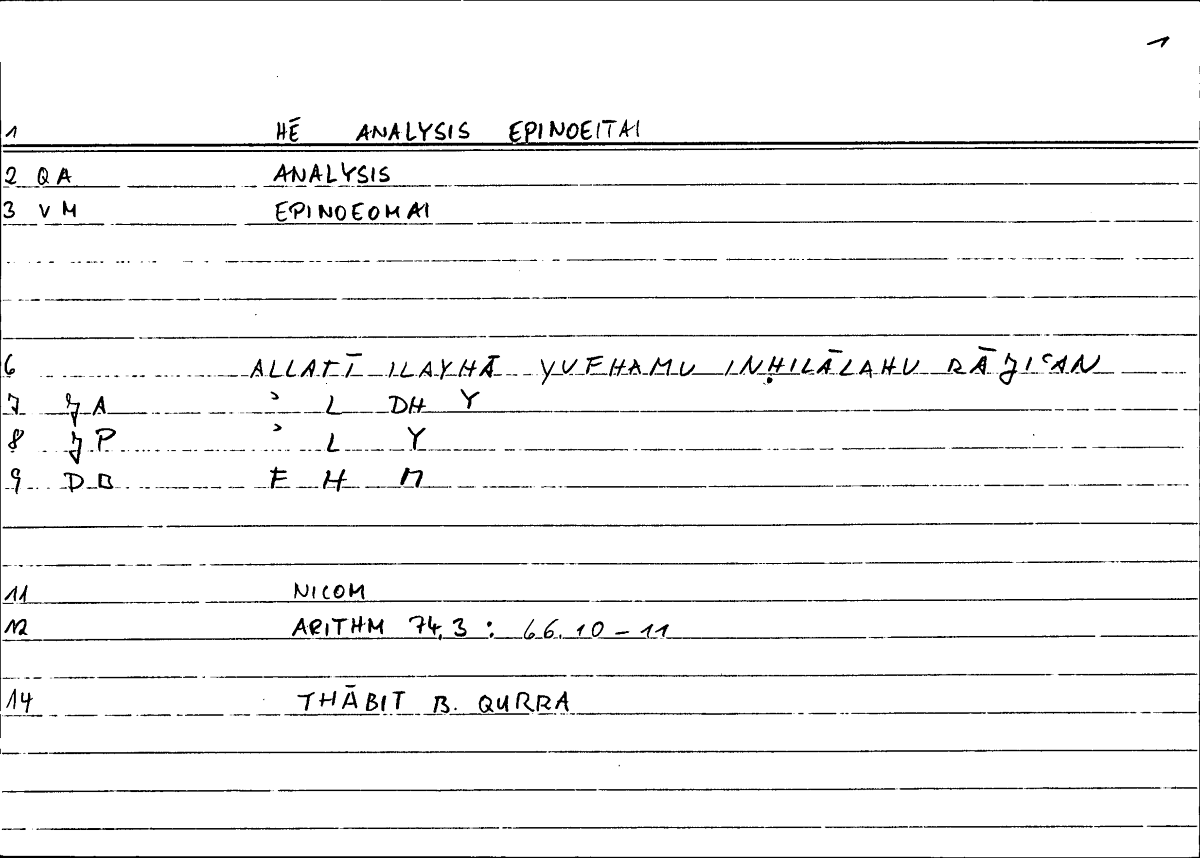 1
1 HĒ ANALYSIS EPINOEITAI
2 QA ANALYSIS
3 VM EPINOEOMAI
6 ALLATĪ ILAYHĀ YUFHAMU INḤILĀLAHU RĀJIʿAN
7 JA ʾ L DH Y
8 JP ʾ L Y
9 DB F H M
11 NICOM
12 ARITHM 74,3 : 66.10-11
14 THĀBIT B. QURRA